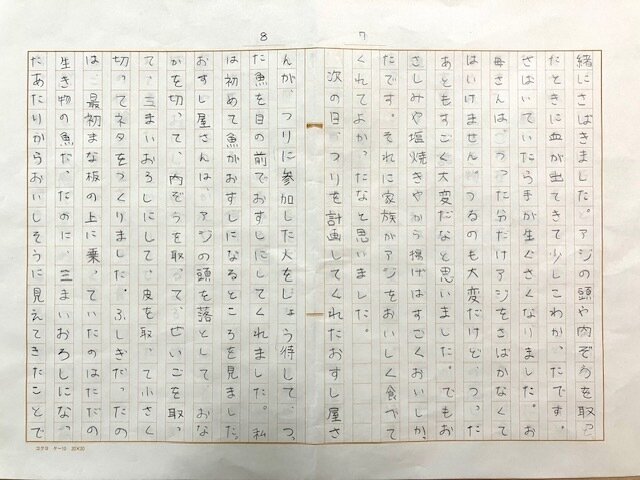 7
緒にさばきました。アジの頭や内ぞうを取っ
たときに血が出てきて少しこわかったです。
さばいていたら手が生ぐさくなりました。お
母さんは、つった分だけアジをさばかなくて
はいけません。つるのも大変だけど、つった
あともすごく大変だなと思いました。でもお
さしみや塩焼きやから揚げはすごくおいしか
ったです。それに家族がアジをおいしく食べて
くれてよかったなと思いました。
次の日、つりを計画してくれたおすし屋さ
8
んが、つりに参加した人をしょう待して、つっ
た魚を目の前でおすしにしてくれました。私
は初めて魚がおすしになるところを見ました。
おすし屋さんは、アジの頭を落として、おな
かを切って、内ぞうを取って、ぜいごを取っ
て、三まいおろしにして、皮を取って小さく
切ってネタをつくりました。ふしぎだったの
は、最初まな板の上に乗っていたのはただの
生き物の魚だったのに、三まいおろしになっ
たあたりからおいしそうに見えてきたことで
コクヨ ケ-10 20×20